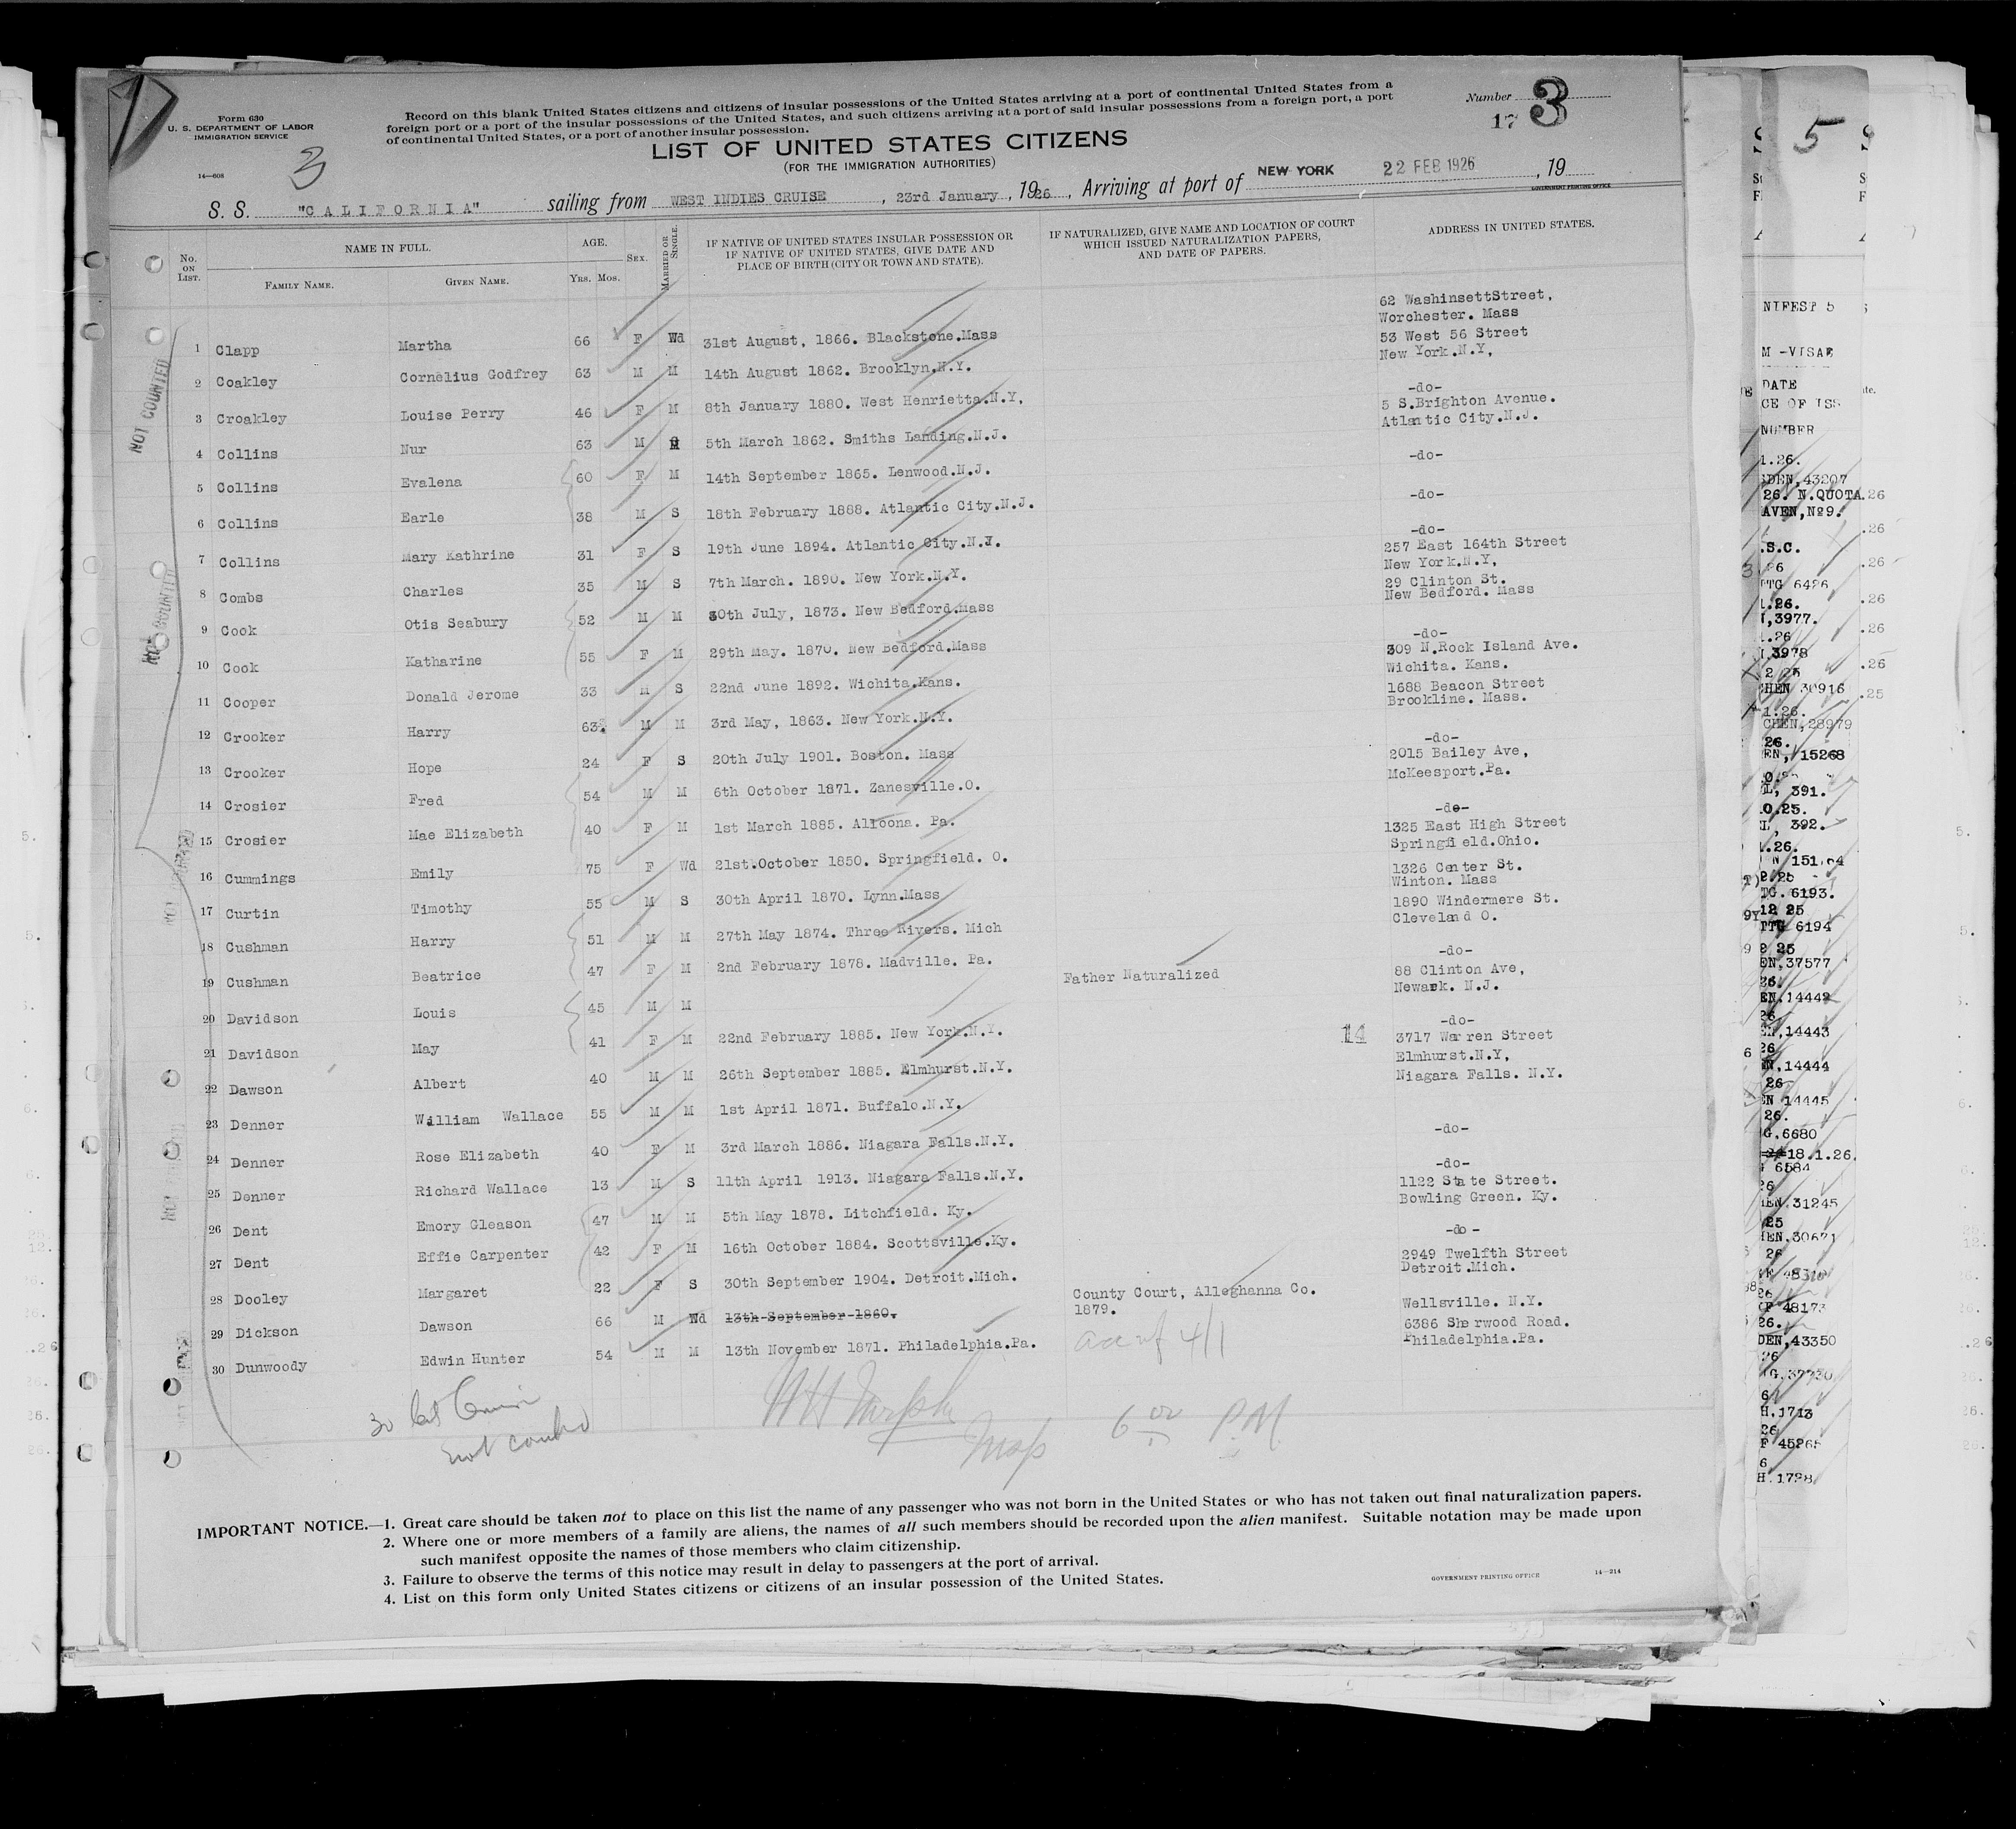 Form 630
U. S. DEPARTMENT OF LABOR
IMMIGRATION SERVICE
14—608
3
Record on this blank United States citizens and citizens of insular possessions of the United States arriving at a port of continental United States from a
foreign port or a port of the insular possessions of the United States, and such citizens arriving at a port of said insular possessions from a foreign port, a port
of continental United States, or a port of another insular possession.
Number 3
17
LIST OF UNITED STATES CITIZENS
(FOR THE IMMIGRATION AUTHORITIES)
S. S. "CALIFORNIA" sailing from WEST INDIES CRUISE, 23rd January, 1926, Arriving at port of NEW YORK 22 FEB 1926, 19
GOVERNMENT PRINTING OFFICE
No. ON LIST. NAME IN FULL. FAMILY NAME. GIVEN NAME. AGE. YRS. MOS. SEX. MARRIED OR SINGLE. IF NATIVE OF UNITED STATES INSULAR POSSESSION OR IF NATIVE OF UNITED STATES, GIVE DATE AND PLACE OF BIRTH (CITY OR TOWN AND STATE). IF NATURALIZED, GIVE NAME AND LOCATION OF COURT WHICH ISSUED NATURALIZATION PAPERS, AND DATE OF PAPERS. ADDRESS IN UNITED STATES.
1 Clapp Martha 66 F Wd 31st August, 1866. Blackstone.Mass 62 WashinsettStreet, Worchester. Mass
2 Coakley Cornelius Godfrey 63 M M 14th August 1862. Brooklyn.N.Y. 53 West 56 Street New York.N.Y,
3 Croakley Louise Perry 46 F M 8th January 1880. West Henrietta.N.Y, -do-
4 Collins Nur 63 M 5th March 1862. Smiths Landing.N.J. 5 S.Brighton Avenue. Atlantic City.N.J.
5 Collins Evalena 60 F M 14th September 1865. Lenwood.N.J. -do-
6 Collins Earle 38 M S 18th February 1888. Atlantic City.N.J. -do-
7 Collins Mary Kathrine 31 F S 19th June 1894. Atlantic City.N.J. -do-
8 Combs Charles 35 M S 7th March. 1890. New York.N.Y. 257 East 164th Street New York.N.Y,
9 Cook Otis Seabury 52 M M 30th July, 1873. New Bedford.Mass 29 Clinton St. New Bedford. Mass
10 Cook Katharine 55 F M 29th May. 1870. New Bedford.Mass -do-
11 Cooper Donald Jerome 33 M S 22nd June 1892. Wichita.Kans. 309 N.Rock Island Ave. Wichita. Kans.
12 Crooker Harry 63 M M 3rd May, 1863. New York.N.Y. 1688 Beacon Street Brookline. Mass.
13 Crooker Hope 24 F S 20th July 1901. Boston. Mass -do-
14 Crosier Fred 54 M M 6th October 1871. Zanesville.O. 2015 Bailey Ave, McKeesport.Pa.
15 Crosier Mae Elizabeth 40 F M 1st March 1885. Altoona. Pa. -do-
16 Cummings Emily 75 F Wd 21st.October 1850. Springfield. O. 1325 East High Street Springfield.Ohio.
17 Curtin Timothy 55 M S 30th April 1870. Lynn.Mass 1326 Center St. Winton. Mass
18 Cushman Harry 51 M M 27th May 1874. Three Rivers. Mich 1890 Windermere St. Cleveland O.
19 Cushman Beatrice 47 F M 2nd February 1878. Madville. Pa. -do-
20 Davidson Louis 45 M M Father Naturalized 88 Clinton Ave, Newark. N.J.
21 Davidson May 41 F M 22nd February 1885. New York.N.Y. 14 -do-
22 Dawson Albert 40 M M 26th September 1885. Elmhurst.N.Y. 3717 Warren Street Elmhurst.N.Y,
23 Denner William Wallace 55 M M 1st April 1871. Buffalo.N.Y. Niagara Falls. N.Y.
24 Denner Rose Elizabeth 40 F M 3rd March 1886. Niagara Falls.N.Y. -do-
25 Denner Richard Wallace 13 M S 11th April 1913. Niagara Falls.N.Y. -do-
26 Dent Emory Gleason 47 M M 5th May 1878. Litchfield. Ky. 1122 State Street. Bowling Green. Ky.
27 Dent Effie Carpenter 42 F M 16th October 1884. Scottsville.Ky. -do-
28 Dooley Margaret 22 F S 30th September 1904. Detroit.Mich. 2949 Twelfth Street Detroit.Mich.
29 Dickson Dawson 66 M Wd 13th September 1860. County Court, Alleghanna Co. 1879. Wellsville. N.Y.
30 Dunwoody Edwin Hunter 54 M M 13th November 1871. Philadelphia.Pa. 6386 Sherwood Road. Philadelphia.Pa.
NOT COUNTED
NOT COUNTED
30
not
6 00 PM
IMPORTANT NOTICE.—1. Great care should be taken not to place on this list the name of any passenger who was not born in the United States or who has not taken out final naturalization papers.
2. Where one or more members of a family are aliens, the names of all such members should be recorded upon the alien manifest. Suitable notation may be made upon
such manifest opposite the names of those members who claim citizenship.
3. Failure to observe the terms of this notice may result in delay to passengers at the port of arrival.
4. List on this form only United States citizens or citizens of an insular possession of the United States.
GOVERNMENT PRINTING OFFICE 14—214
5
NIFEST 5
M -VISAE
DATE
CE OF ISS
NUMBER
1.26.
DEN,43207
26. N.QUOTA.26
AVEN,Nº9.
.S.C.
TG 6426
1.26.
,3977.
3978
CHEN 30916
1.26.
CHEN,28979
26.
EN, 15268
391.
0.25.
392.
1.26.
TG. 6193.
TTG 6194
EN,37577
EN.14442
14443
14444
EN 14445
26.
G.6680
18.1.26.
6584
EN.31245
25
HEN.30671
26
48173
26.
DEN,43350
H.1713
F 45265
H.1728